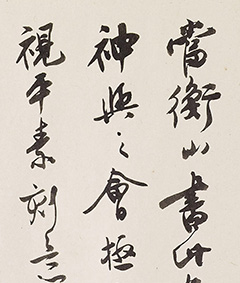 當衡山書此
神與之會極
視平素刻意